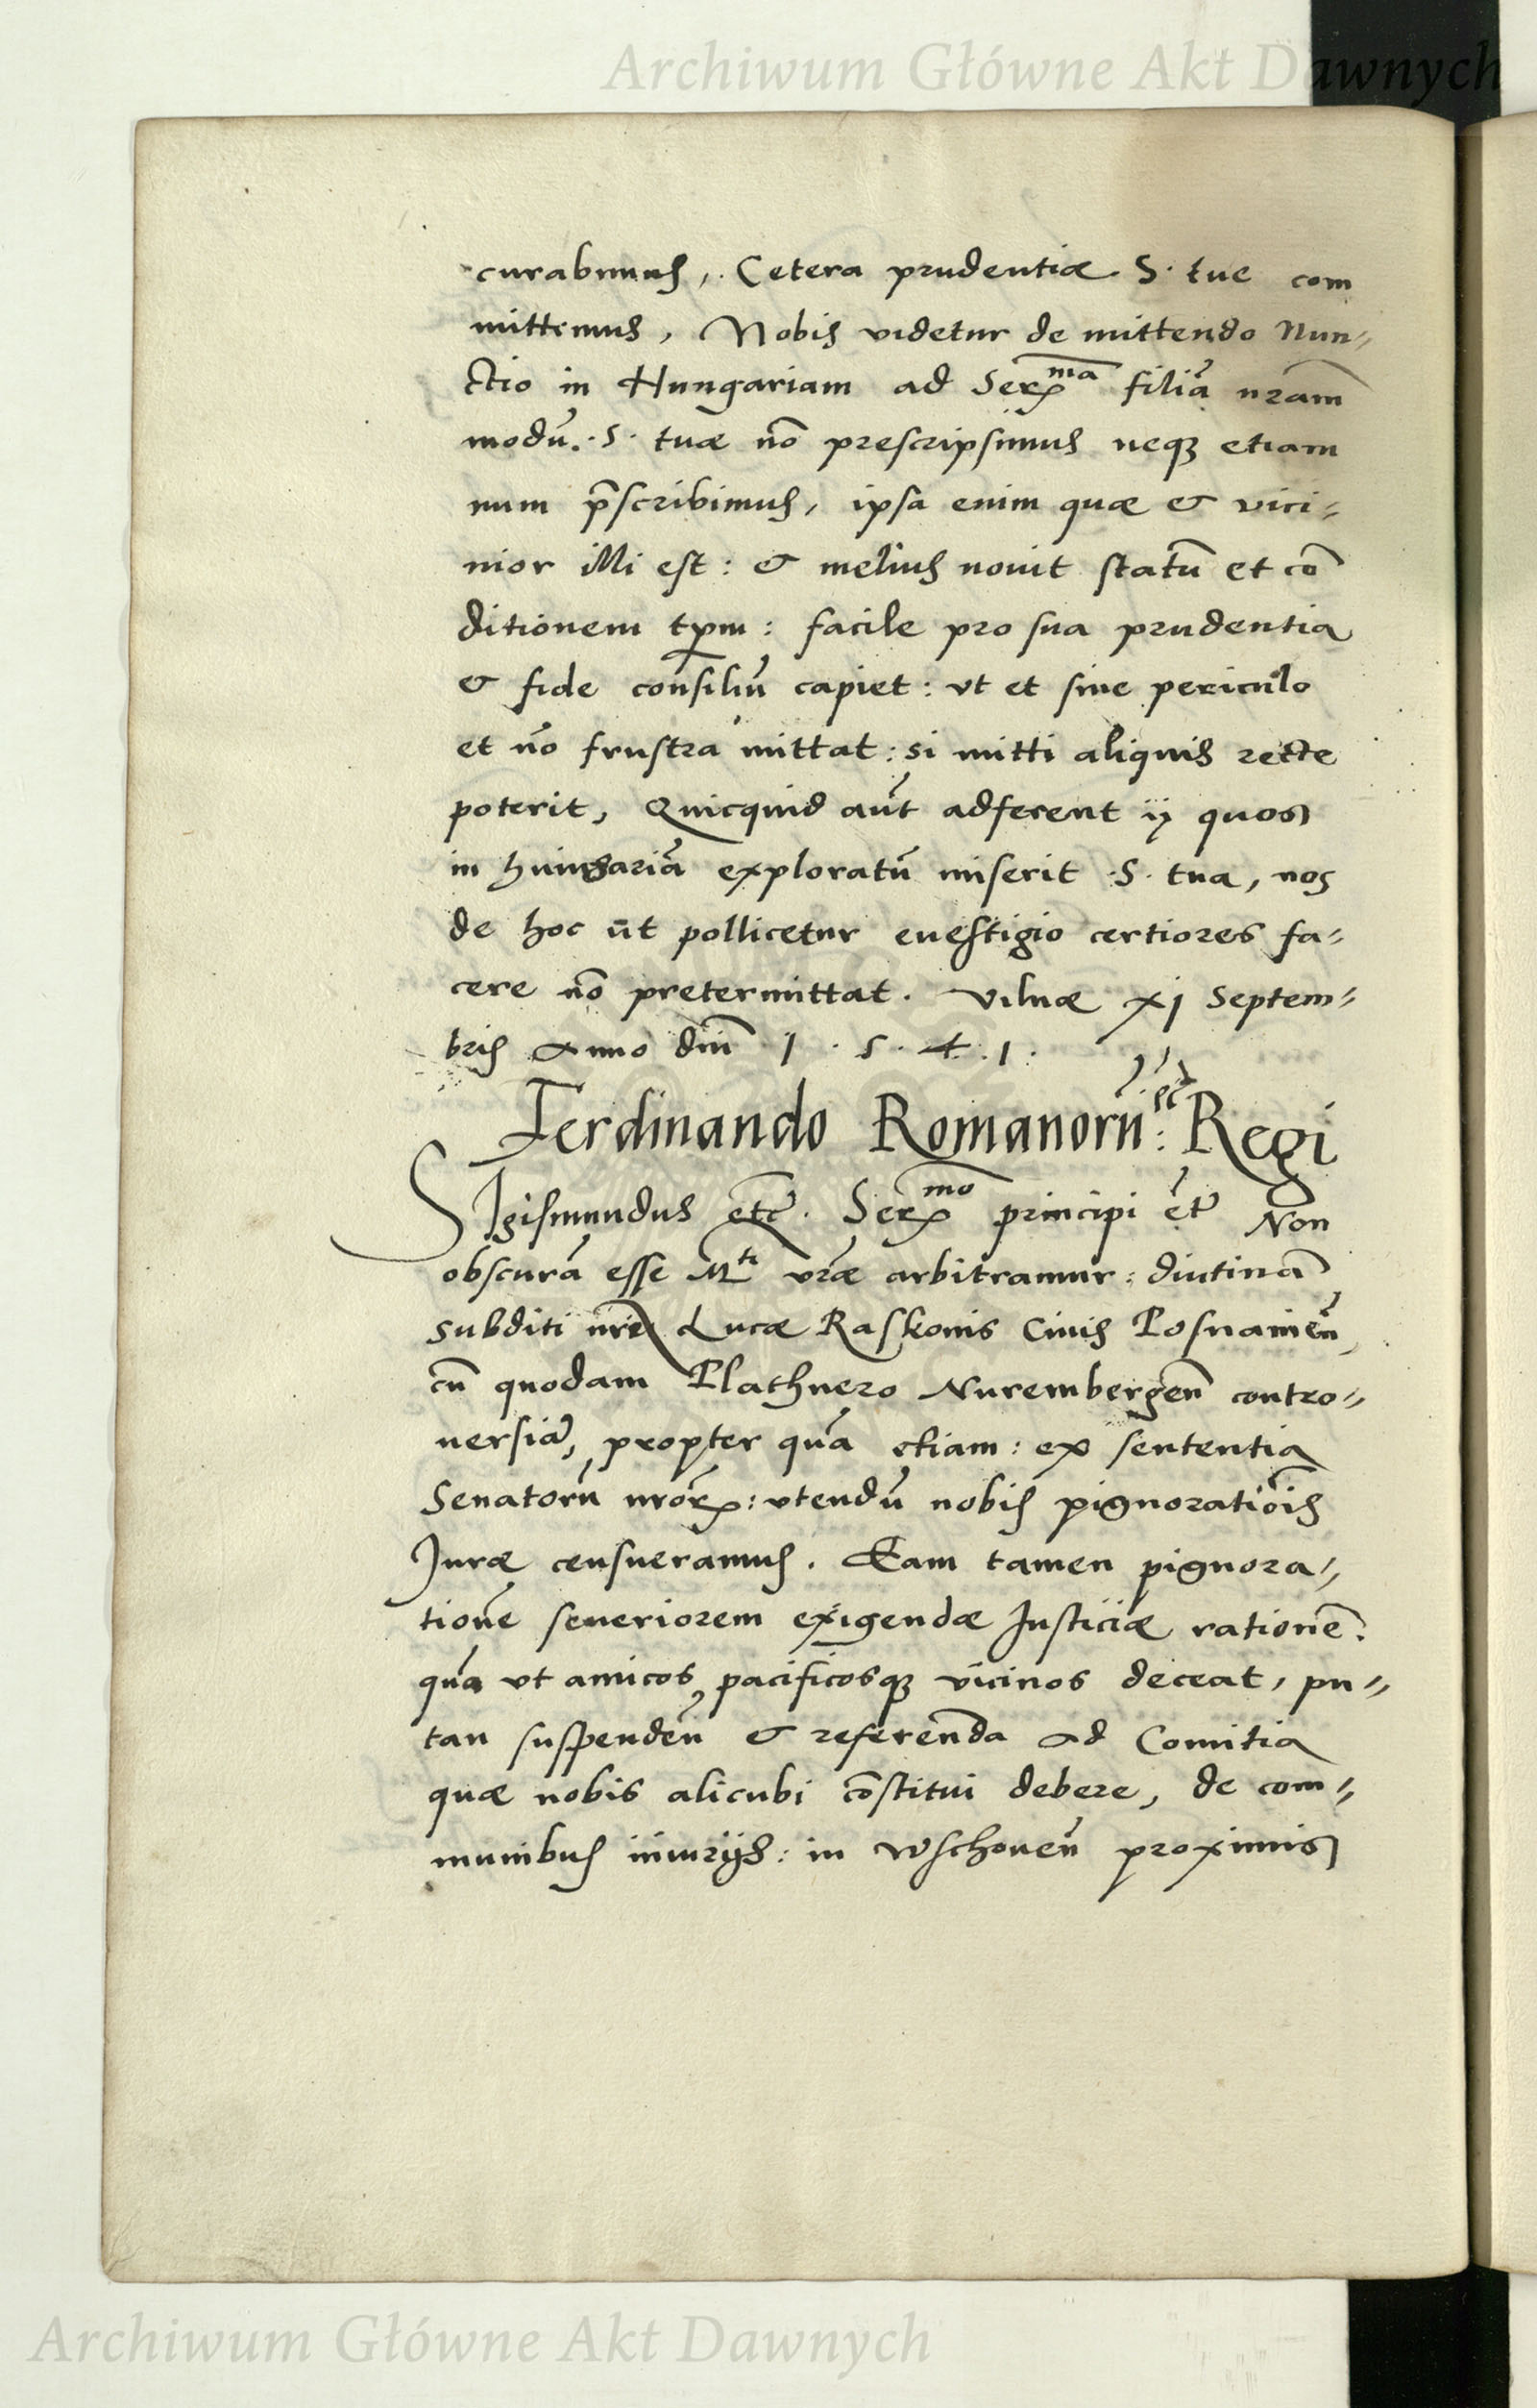 Archiwum Główne Akt Dawnych
curabimus, Cetera prudentiæ S. tue com
mittimus, Nobis videtur de mittendo Nun⸗
ctio in Hungariam ad Serᵐᵃ filiā nrām
modū. S. tuæ nō prescripsimus neqꝫ etiam
num p̄scribimus, ipsa enim quæ & vici⸗
nior illi est: & melius nouit statū et cō
ditionem tpm: facile pro sua prudentia
& fide consiliū capiet: vt et sine periculo
et nō frustra mittat: si mitti aliquis recte
poterit, Quicquid aūt adferent ij quos
in hungariā exploratū miserit S. tua, nos
de hoc ūt pollicetur euestigio certiores fa⸗
cere nō pretermittat. Vilnæ xj Septem⸗
bris Anno dnī 1.5.4.1.
Ferdinando Romanorū: etc Regi
Sigismundus etc̄. Serᵐᵒ principi et̄ Non
obscurā esse Mᵗⁱ vr̄æ arbitramur: diutinā
subditi nrī Lucæ Raskonis Ciuis Posnamēn
cū quodam Plathnero Nurembergēn contro⸗
uersiā, propter quā etiam: ex sententia
Senatorū nrōrꝝ: vtendū nobis pignoratiōis
Juræ censueramus. Eam tamen pignora⸗
tionē seueriorem exigendæ Justiciæ rationē.
quā vt amicos pacificosqꝫ vicinos deceat, pu⸗
tan suspendēn & referenda ad Comitia
quæ nobis alicubi cōstitui debere, de com⸗
munibus iniurijs: in Wschouēn proximis
Archiwum Główne Akt Dawnych